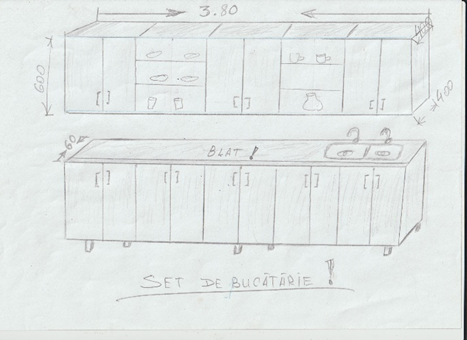 3.80
600
400
60
BLAT !
SET DE BUCĂTĂRIE !